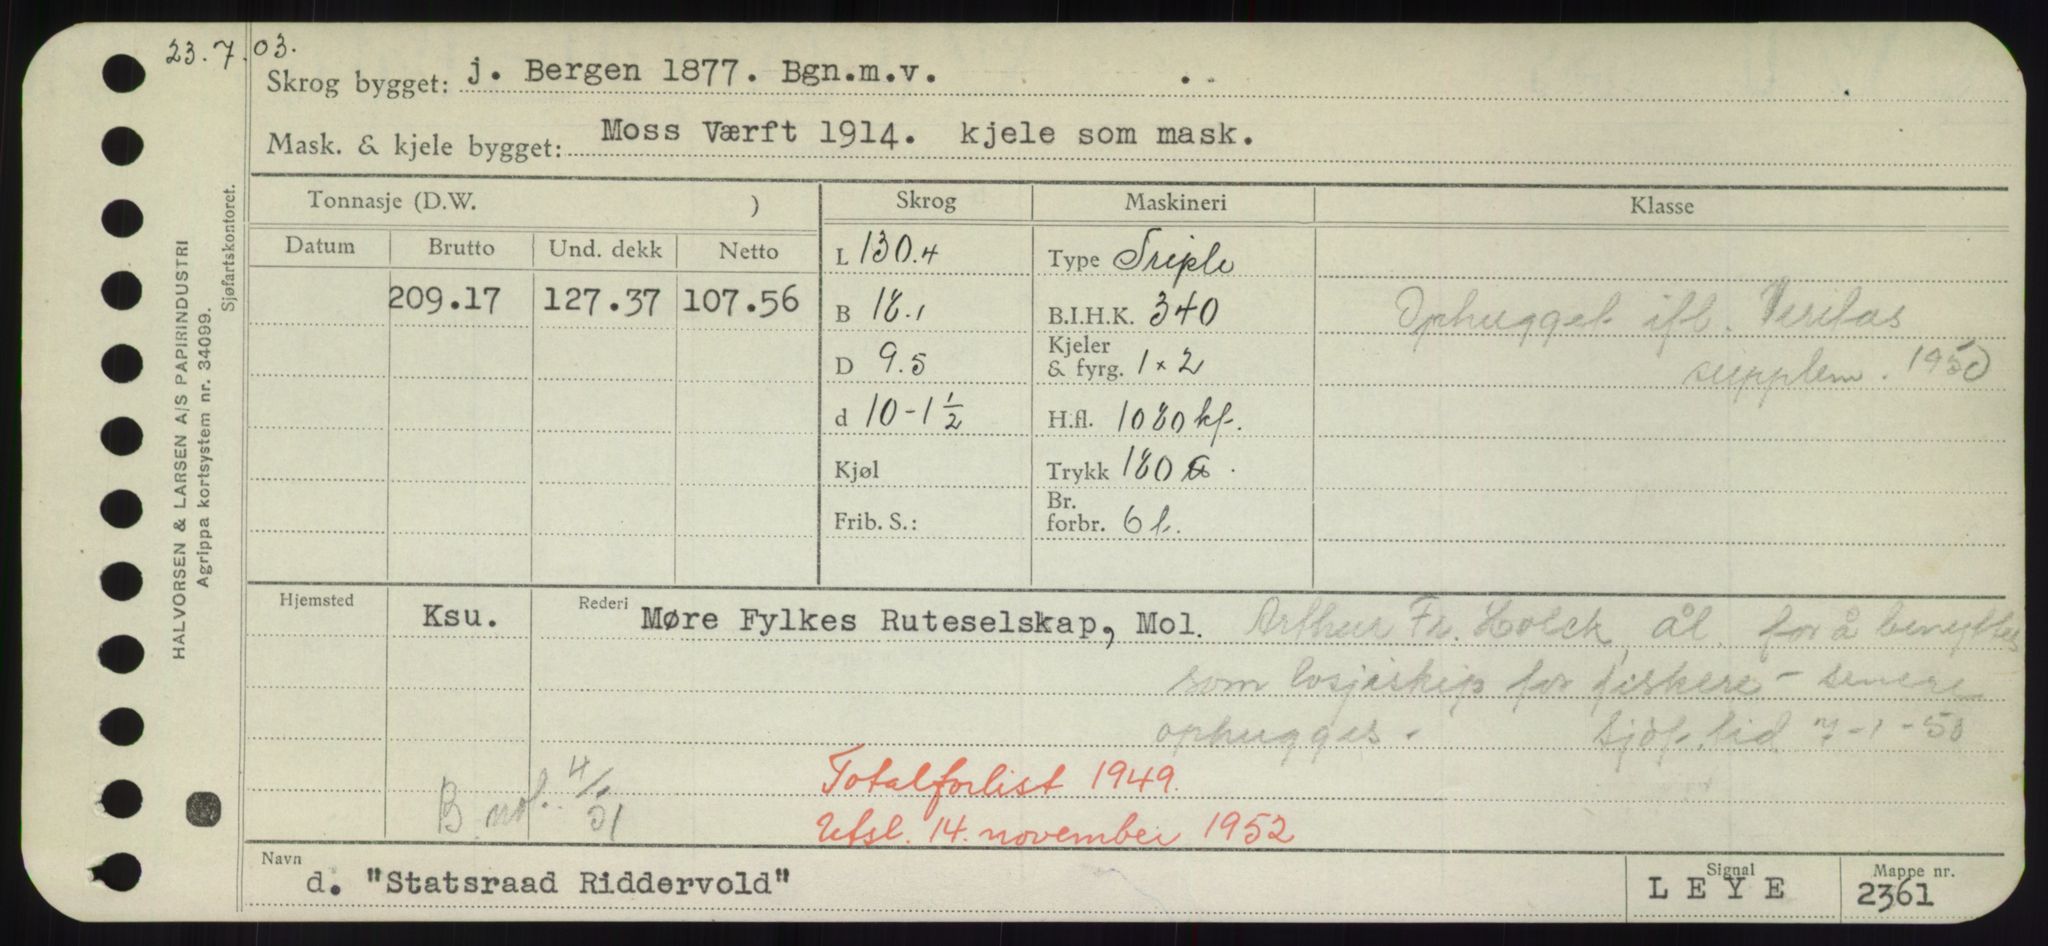 23.7.03.
Skrog bygget: j. Bergen 1877. Bgn.m.v.
Mask. & kjele bygget: Moss Værft 1914. kjele som mask.
Tonnasje (D.W. ) Skrog Maskineri Klasse
Datum Brutto Und. dekk Netto
209.17 127.37 107.56
L 130.4
B 18.1
D 9.5
d 10-1 1/2
Kjøl
Frib. S.:
Type Triple
B.I.H.K. 340
Kjeler & fyrg. 1 x 2
H.fl. 1080 kf.
Trykk 180
Br. forbr. 6 t.
Ophugget ifl. Veritas
supplem. 1950
Hjemsted Ksu. Rederi Møre Fylkes Ruteselskap, Mol. Arthur Fr. Holck, Ål. for å benyttes
som losjiskip for fiskere - senere
ophugges. Sjøf.tid 7-1-50
B. not. 4/1 51
Totalforlist 1949.
Utsl. 14. november 1952
Navn d. "Statsraad Riddervold" Signal LEYE Mappe nr. 2361
HALVORSEN & LARSEN A/S PAPIRINDUSTRI
Agrippa kortsystem nr. 34099.
Sjøfartskontoret.